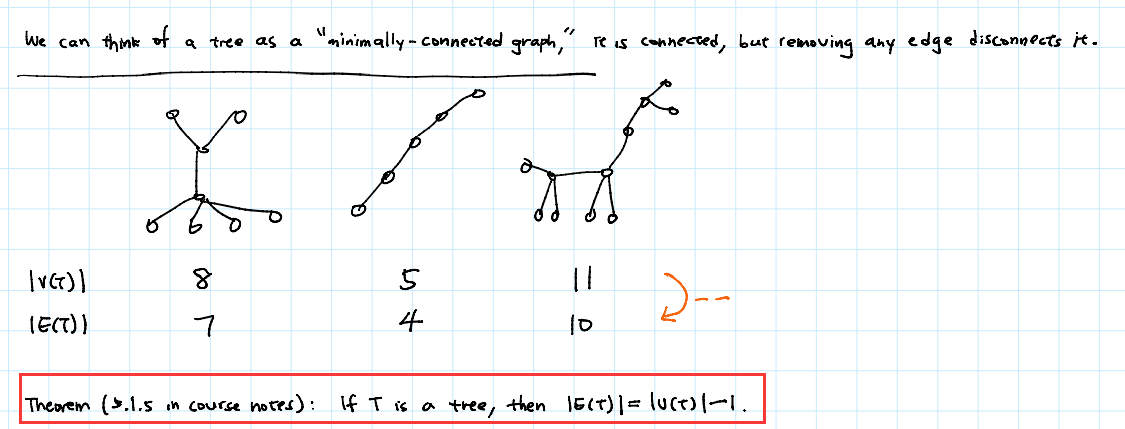 We can think of a tree as a "minimally-connected graph," it is connected, but removing any edge disconnects it.
|V(T)| 8 5 11
|E(T)| 7 4 10
Theorem (5.1.5 in course notes): If T is a tree, then |E(T)|=|V(T)|-1.